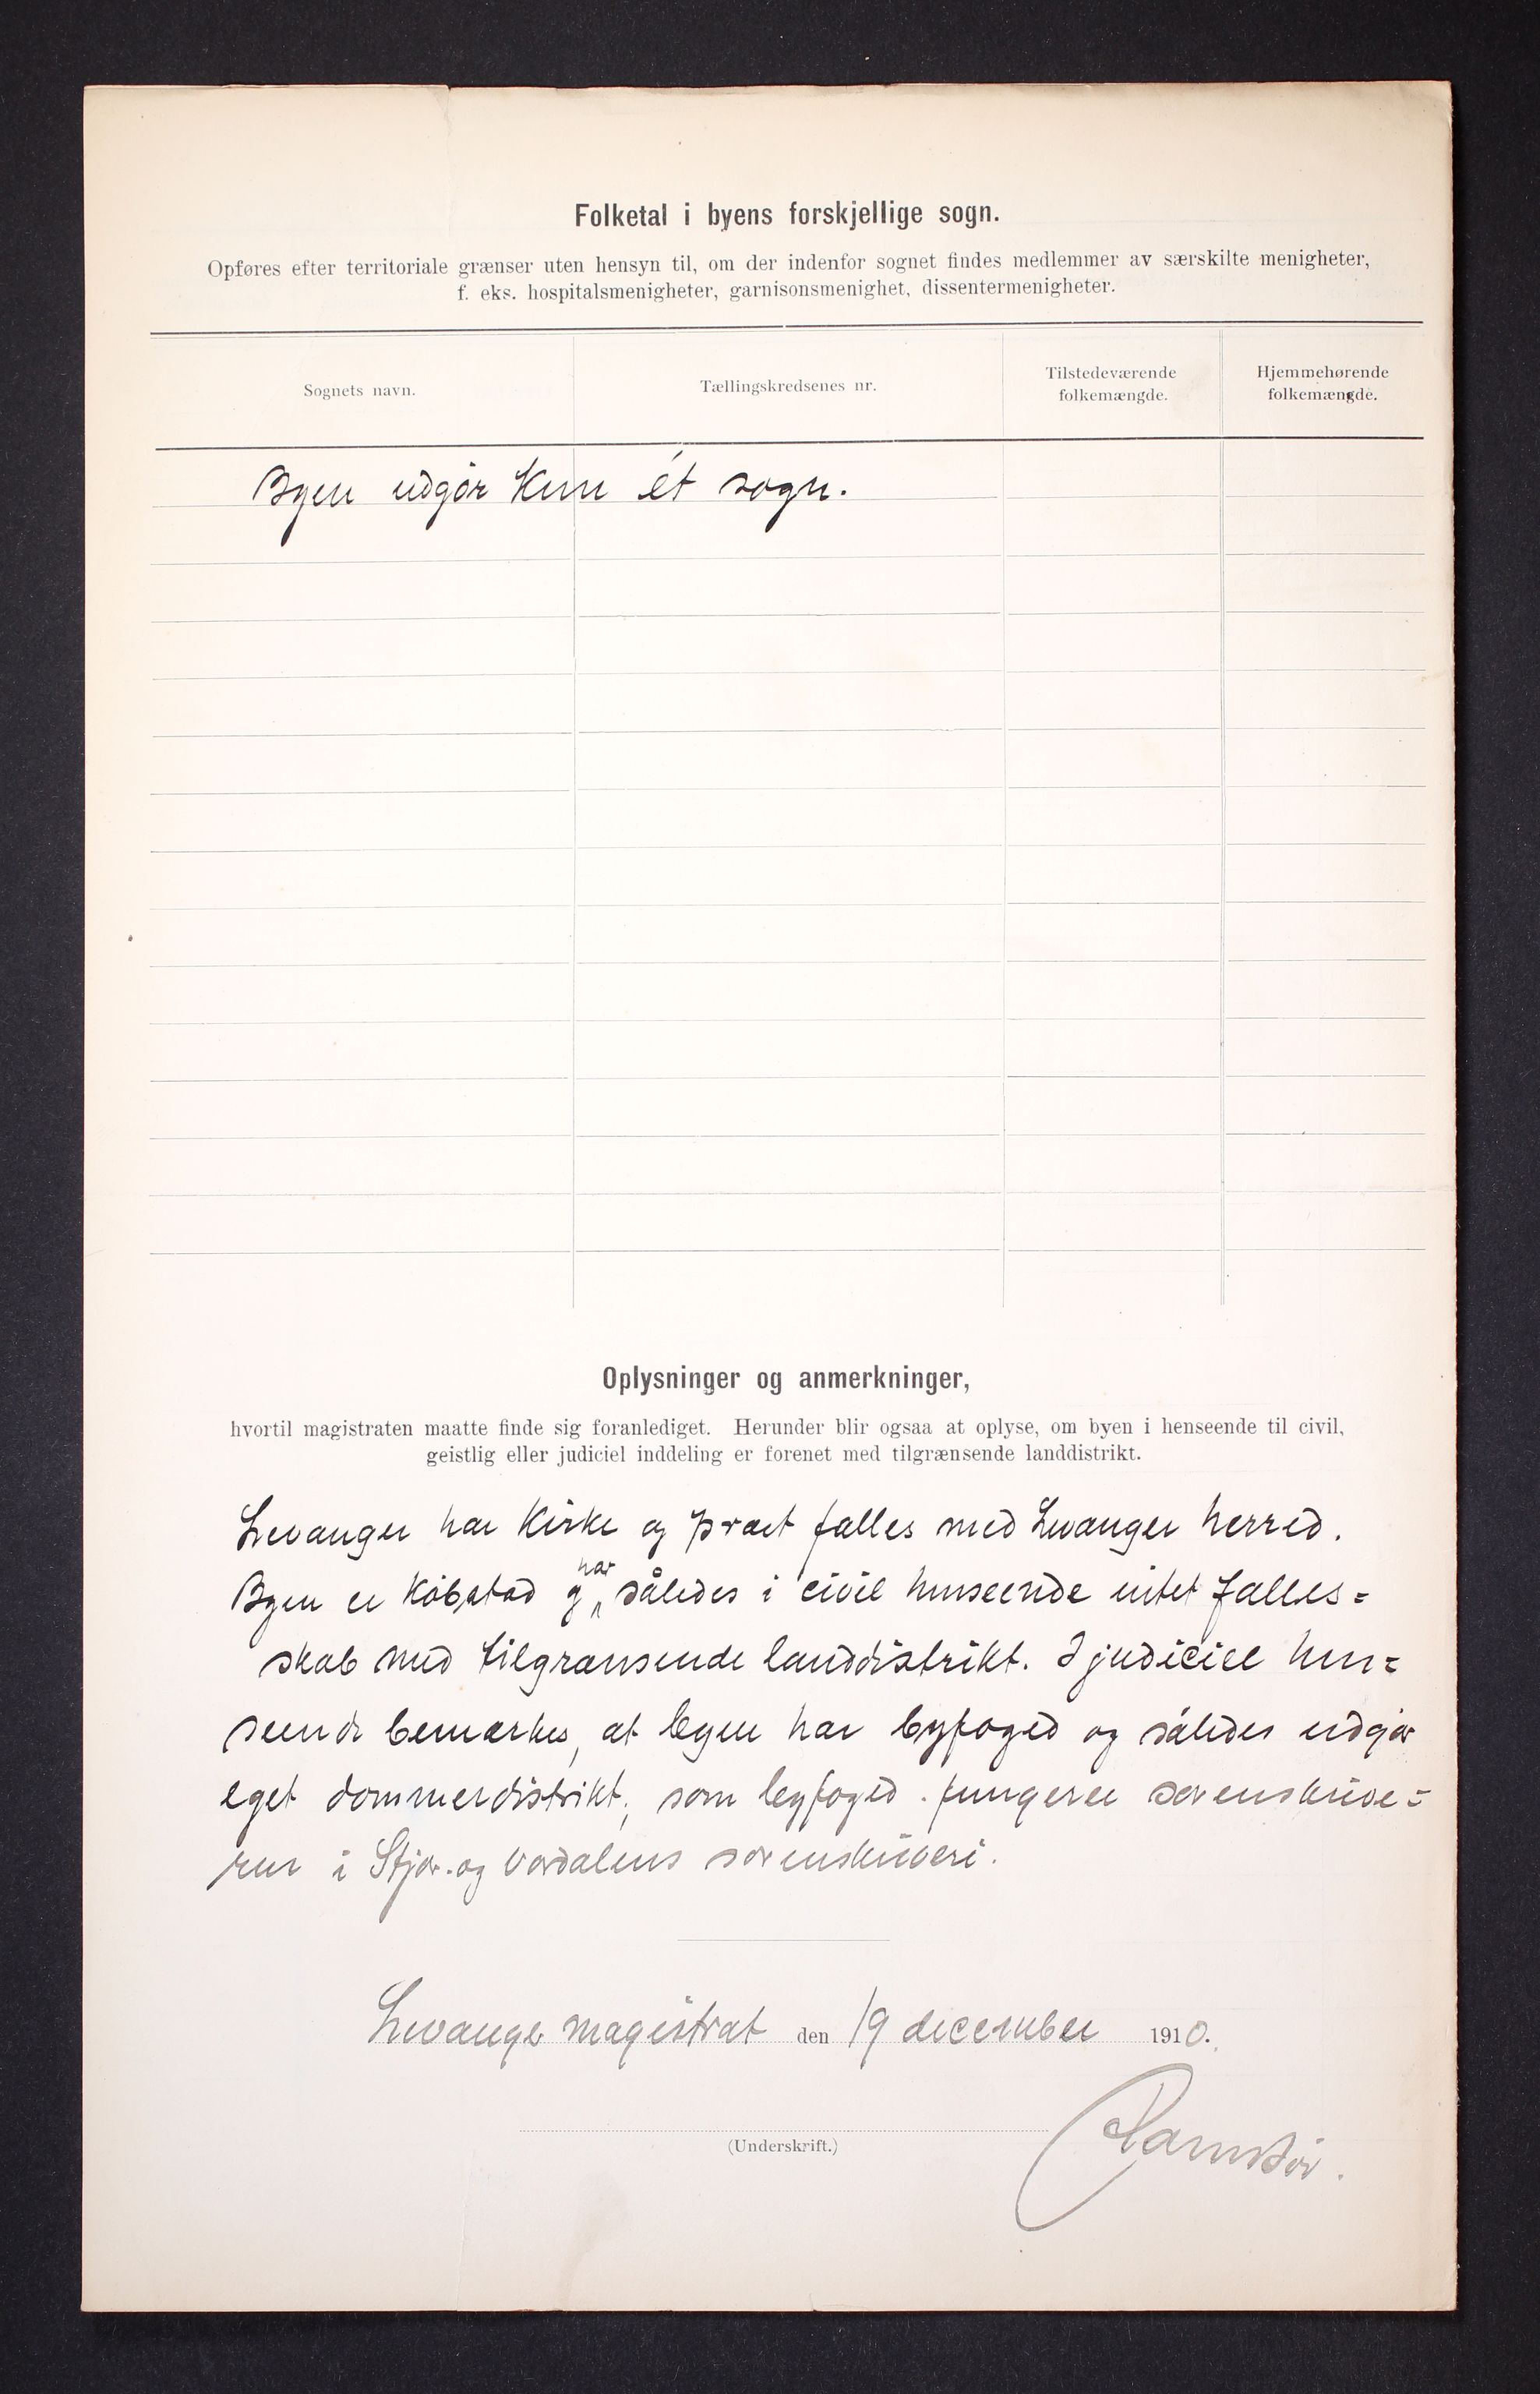 Folketal i byens forskjellige sogn.
Opføres efter territoriale grænser uten hensyn til, om der indenfor sognet findes medlemmer av særskilte menigheter,
f. eks. hospitalsmenigheter, garnisonsmenighet, dissentermenigheter.
Sognets navn.
Tællingskredsenes nr.
Tilstedeværende
folkemængde.
Hjemmehørende
folkemængde.
Byen udgør kun ét sogn.
Oplysninger og anmerkninger,
hvortil magistraten maatte finde sig foranlediget. Herunder blir ogsaa at oplyse, om byen i henseende til civil,
geistlig eller judiciel inddeling er forenet med tilgrænsende landdistrikt.
Levanger har kirke og præst fælles med Levanger herred.
Byen er købstad og har således i civil henseende intet fælles=
skab med tilgrænsende landdistrikt. I judiciel hen=
seende bemærkes, at byen har byfoged og således udgør
eget dommerdistrikt; som byfoged fungerer sorenskrive=
ren i Stjør- og Værdalens sorenskriveri.
Levanger magistrat den 19 december 1910.
(Underskrift.)